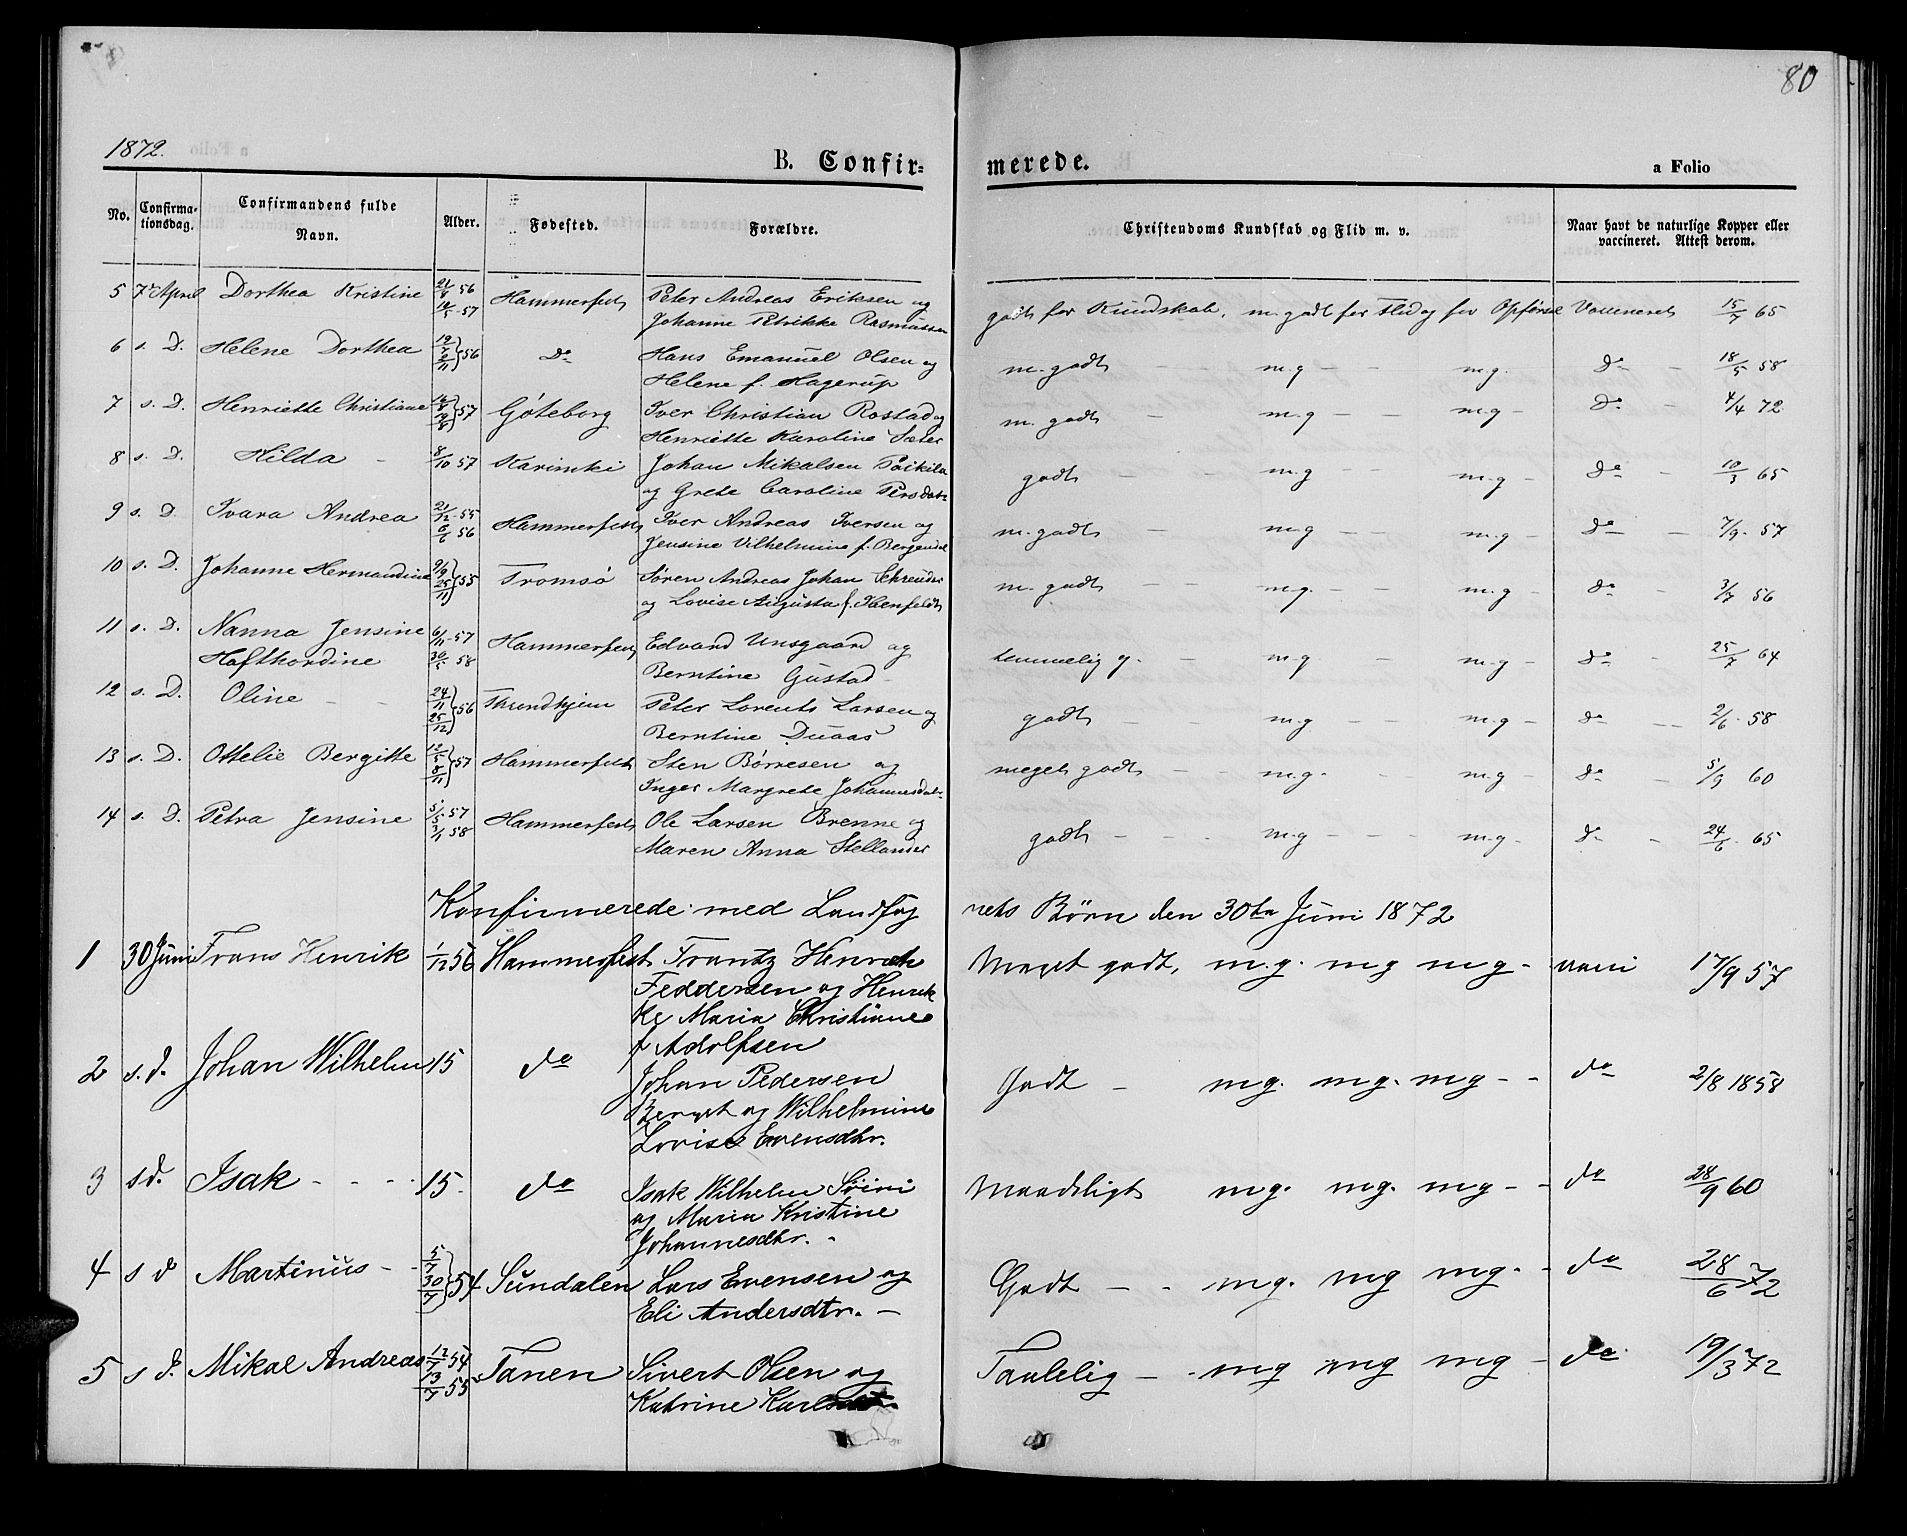 80
1872.
B. Confir-
merede.
a Folio
No.
Confirma-
tionsdag.
Confirmandens fulde
Navn.
Alder.
Fødested.
Forældre.
Christendoms Kundskab og Flid m. v.
Naar havt de naturlige Kopper eller
vaccineret. Attest derom.
5 7de April Dorthea Kristine 21/8 56 14/5 57 Hammerfest Peter Andreas Eriksen og godt for Kundskab, m. godt for Flid og for Opførsel Vaccineret 15/7 65
Johanne Petrikke Rasmussen
6 s. D. Helene Dorthea 19/7 2/11 } 56 Do Hans Emanuel Olsen og m. godt - m.g - - m.g. do - 18/5 58
Helene f. Hagerup
7 s. D. Henriette Christiane 57 Göteborg Iver Christian Rostad og m. godt - m.g - - m.g - do - 4/4 72
Henriette Karoline Sæter
8 s. D. Hilda - 8/10 57 Karinski Johan Mikalsen Poikila godt - m.g m.g - do - 10/3 65
og Grete Caroline Persdatr
9 s. D. Ivara Andrea 21/12 55 6/6 56 Hammerfest Iver Andreas Iversen og m. godt - m.g - m.g - do - 7/9 57
Jensine Vilhelmine f. Bergendal
10 s. D. Johanne Hermandine 9/9 25/11 } 55 Tromsö Sören Andreas Johan Schreuder m. godt - m.g. - m.g - do - 3/7 56
og Lovise Augusta f. Isenfeldt
11 s. D. Nanna Jensine 6/11 57 Hammerfest Edvard Unsgaard og temmelig g. - m.g - m.g - do - 25/7 64
Hafthordine 30/5 58 Berntine Gustad
12 s. D. Oline - - 24/11 25/12 } 56 Thrundhjem Peter Lorents Larsen og godt - m.g - - m.g - do -- 2/6 58
Berntine Duaas
13 s. D. Ottelie Bergitte 12/5 8/11 } 57 Hammerfest Sten Börresen og meget godt - - m.g. - m.g - do - 5/9 60
Inger Margrete Johannesdatr
14 s. D. Petra Jensine 5/5 57 3/1 58 Hammerfest Ole Larsen Brenne og godt - - - m.g - - - m.g - do - 24/6 65
Maren Anna Stellander
Konfirmerede med Landsog
nets Börn den 30te Juni 1872
1 30 Juni Frans Henrik 1/12 56 Hammerfest Frantz Henrik Meget godt, m.g. m g m g - vacci 17/9 57
Feddersen og Henrik
ke Maria Christiane
f Adolfsen
2 s. d. Johan Wilhelm 15 do Johan Pedersen Godt - m g. m g. m g - - do 2/8 1858
Berget og Wilhelmine
Lovise Evensdtr.
3 s d. Isak - - - - 15. do Isak Wilhelm Siiri Maadeligt m g. m g. m g - - do 28/9 60
og Maria Kristine
Johannesdtr.
4 s d Martinus - - 5/7 30/7 } 54 Sundalen Lars Evensen og Godt - - m g. m g m g. - do 28/6 72
Eli Andersdtr. -
5 s d. Mikal Andreas 12/7 54 13/7 55 Tanen Sivert Olsen og Taalelig - - m g m g m g - do 19/3 72
Katrine Karls